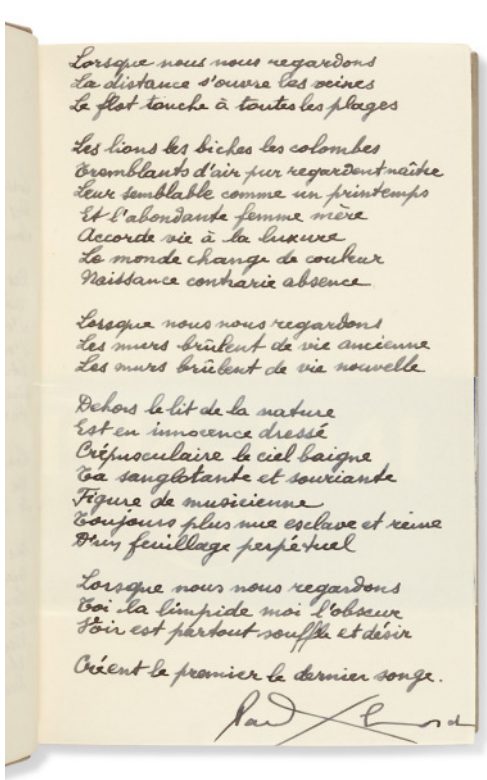 Lorsque nous nous regardons
La distance s'ouvre les veines
Le flot touche à toutes les plages
Les lions les biches les colombes
Tremblants d'air pur regardent naître
Leur semblable comme un printemps
Et l'abondante femme mère
Accorde vie à la luxure
Le monde change de couleur
Naissance contrarie absence
Lorsque nous nous regardons
Les murs brûlent de vie ancienne
Les murs brûlent de vie nouvelle
Dehors le lit de la nature
Est en innocence dressé
Crépusculaire le ciel baigne
Ta sanglotante et souriante
Figure de musicienne
Toujours plus nue esclave et reine
D'un feuillage perpétuel
Lorsque nous nous regardons
Toi la limpide moi l'obscur
Voir est partout souffle et désir
Créent le premier le dernier songe.
Paul Eluard